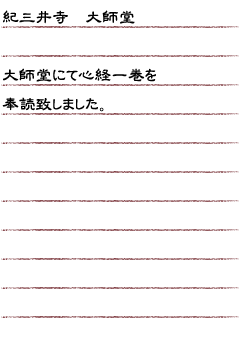 紀三井寺　大師堂
大師堂にて心経一巻を
奉読致しました。